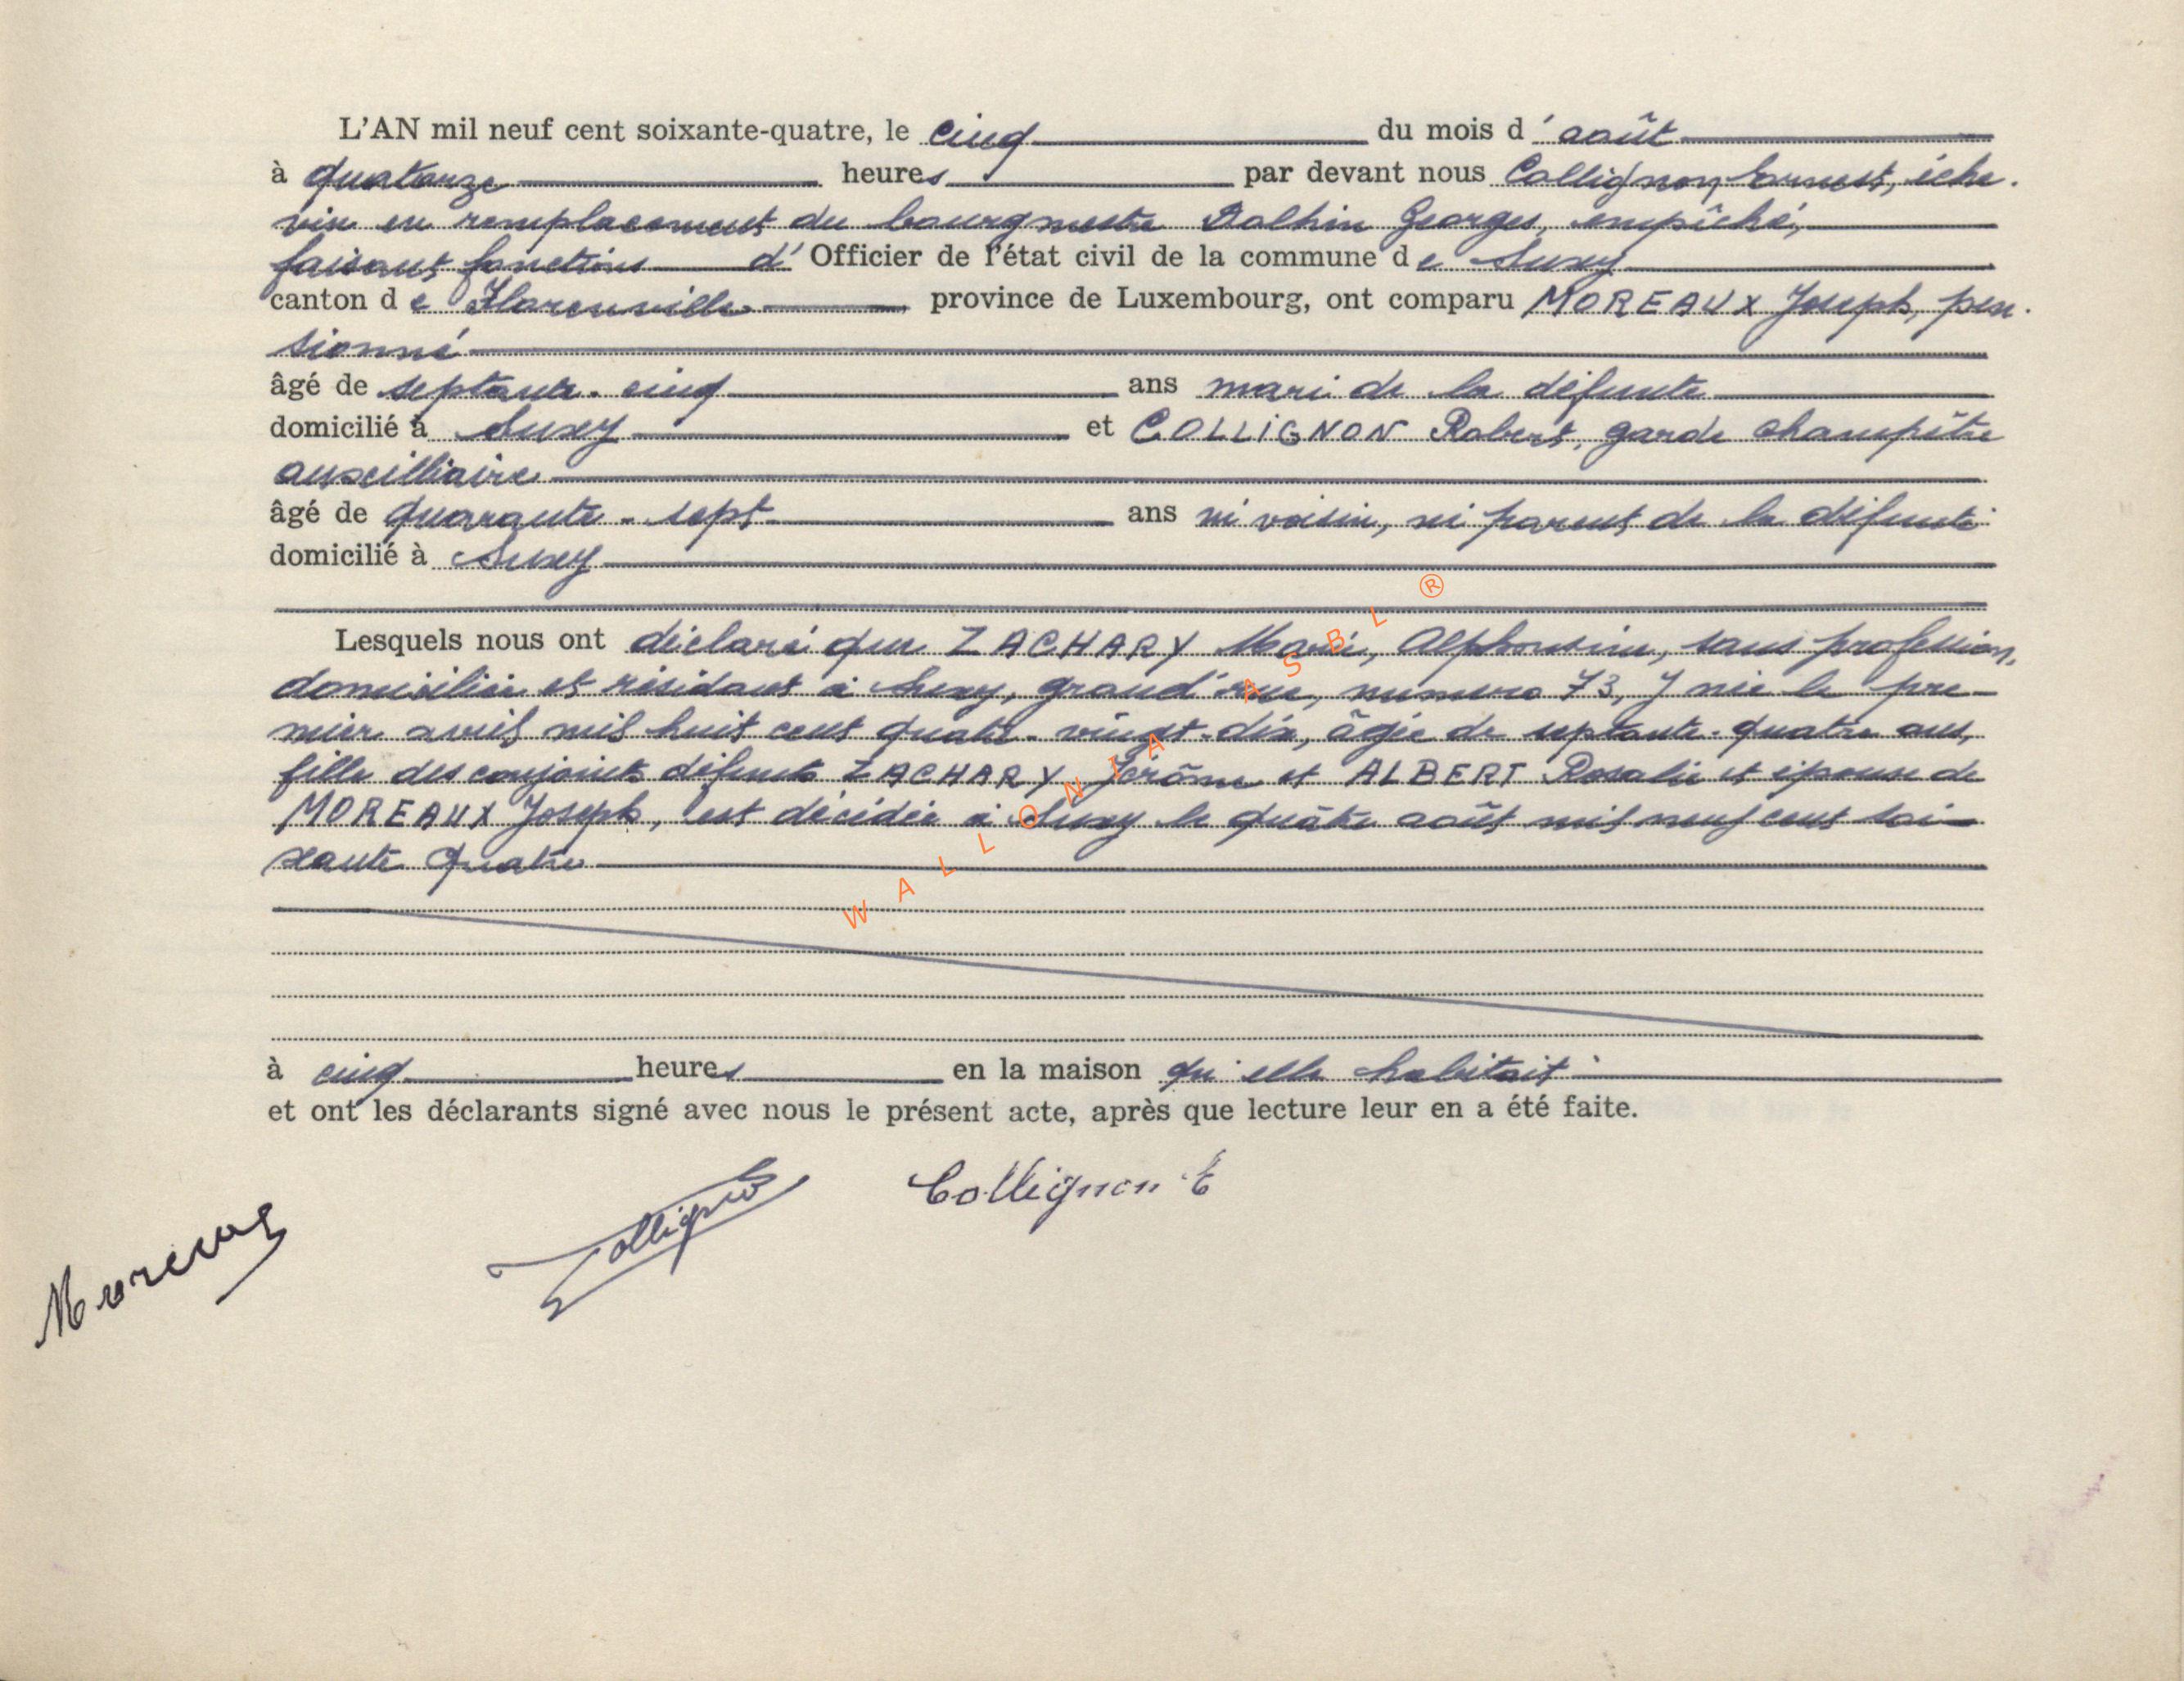 L'AN mil neuf cent soixante-quatre, le cinq du mois d'août
à quatorze heures par devant nous Collignon Ernest, éche-
vin en remplacement du bourgmestre Dalhin Georges, empêché,
faisant fonctions d'Officier de l'état civil de la commune de Suxy
canton de Florenville province de Luxembourg, ont comparu MOREAUX Joseph, pen-
sionné
âgé de septante-cinq ans mari de la défunte
domicilié à Suxy et COLLIGNON Robert, garde champêtre
auxilliaire
âgé de quarante-sept ans ni voisin, ni parent de la défunte
domicilié à Suxy
Lesquels nous ont déclaré que ZACHARY Marie, Alphonsine, sans profession,
domiciliée et résidant à Suxy, grand'rue, numéro 73, y née le pre-
mier avril mil huit cent quatre-vingt-dix, âgée de septante-quatre ans,
fille des conjoints défunts ZACHARY Jérôme et ALBERT Rosalie et épouse de
MOREAUX Joseph, est décédée à Suxy le quatre août mil neuf cent soi-
xante quatre
à cinq heures en la maison qu'elle habitait
et ont les déclarants signé avec nous le présent acte, après que lecture leur en a été faite.
Moreaux Collignon Collignon E
WALLONIA ASBL ®